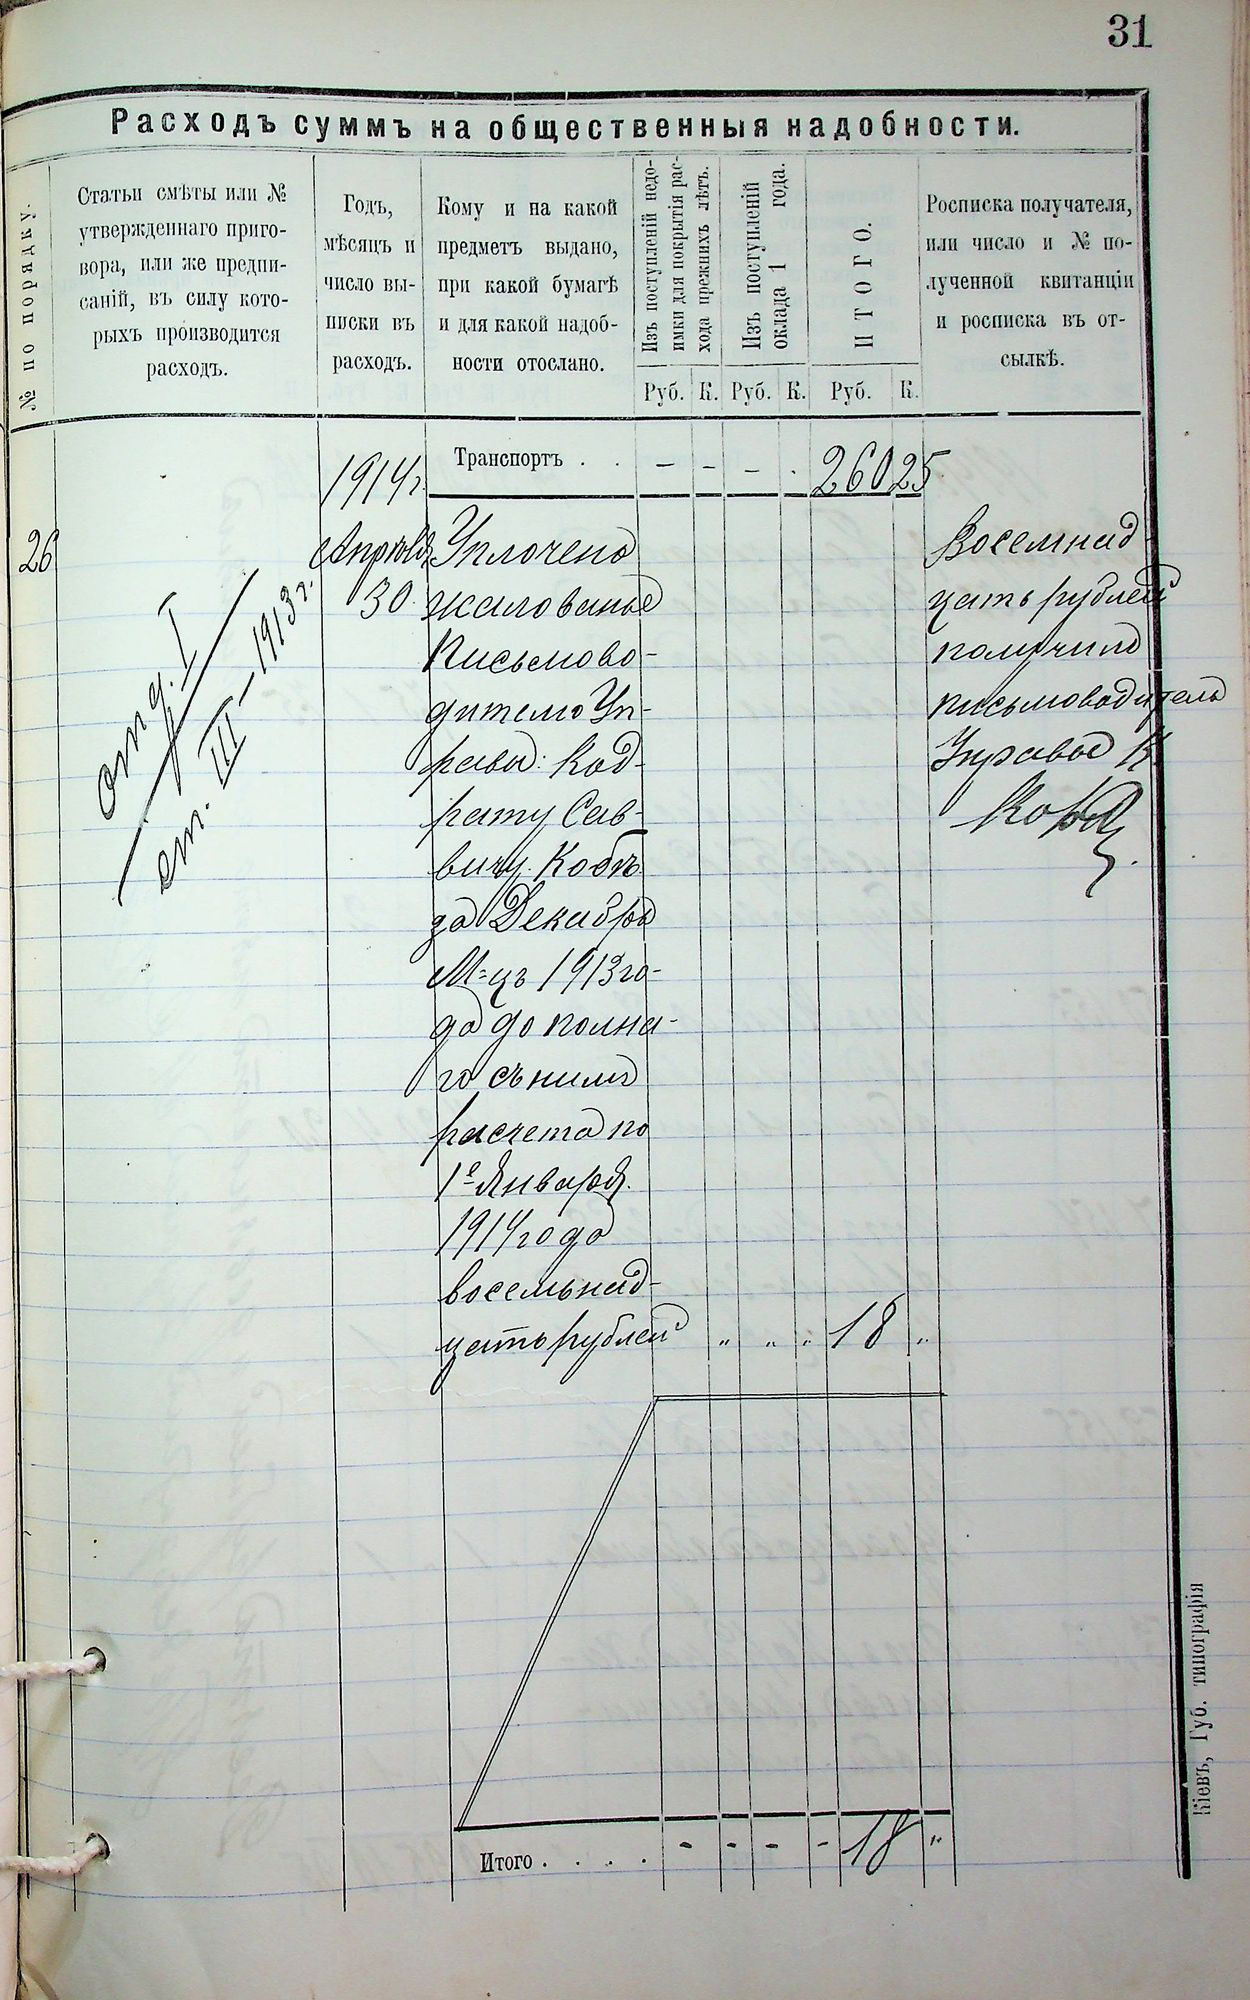 31
Расходъ суммъ на общественныя надобности.
№ по порядку.
Статьи смѣты или №
утвержденнаго приго-
вора, или же предпи-
саній, въ силу кото-
рыхъ производится
расходъ.
Годъ,
мѣсяцъ и
число вы-
писки въ
расходъ.
Кому и на какой
предметъ выдано,
при какой бумагѣ
и для какой надоб-
ности отослано.
Изъ поступленій недо-
имки для покрытія рас-
хода прежнихъ лѣтъ.
Изъ поступленій
оклада 1 года.
ИТОГО.
Росписка получателя,
или число и № по-
лученной квитанціи
и росписка въ от-
сылкѣ.
Руб. К. Руб. К. Руб. К.
1914 г.
Транспортъ . . – – – . 260 25
26
отд. I
ст. III – 1913 г.
Апрѣля
30
Уплочено
жалованье
Письмово-
дителю Уп-
равы: Код-
рату Сав-
вичу
за Декабрь
М-цъ 1913 го-
да до полна-
го съ нимъ
расчета по
1е Января
1914 года
восемьнад-
цать рублей „ „ „ 18 „
Восемнад-
цать рублей
получилъ
письмоводитель
Управы К
Итого . . . . - - - - 18 „
Кіевъ, Губ. типографія